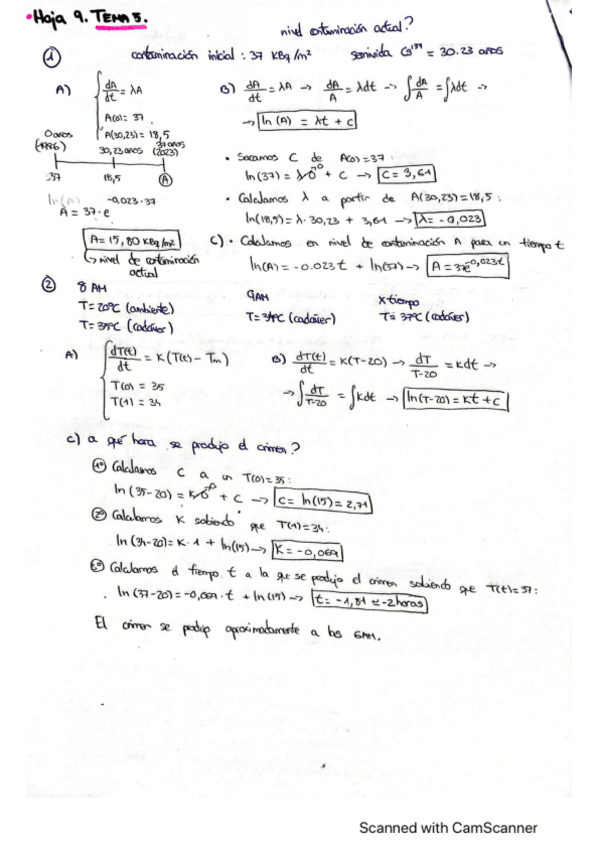 • Hoja 9. TEMA 5.
nivel contaminación actual?
① contaminación inicial : 37 KBq/m² semivida Cs¹³⁷ = 30.23 años
A) { dA/dt = λA
A(0) = 37
A(30,23) = 18,5
B) dA/dt = λA → dA/A = λdt → ∫ dA/A = ∫ λdt →
→ ln(A) = λt + c
0 años (1986) 30,23 años 37 años (2023)
37 18,5 A
• Sacamos C de A(0) = 37
ln(37) = λ·0 + C → C = 3,61
• Calculamos λ a partir de A(30,23) = 18,5 :
ln(18,5) = λ · 30,23 + 3,61 → λ = -0,023
A = 37 · e -0,023·37
A = 15,80 KBq/m²
↳ nivel de contaminación actual
C) • Calculamos en nivel de contaminación A para un tiempo t
ln(A) = -0.023t + ln(37) → A = 37e^-0,023t
② 8 AM
T = 20ºC (ambiente)
T = 35ºC (cadáver)
9 AM
T = 34ºC (cadáver)
x tiempo
T = 37ºC (cadáver)
A) { dT(t)/dt = K(T(t) - Tm)
T(0) = 35
T(1) = 34
B) dT(t)/dt = K(T-20) → dT/T-20 = kdt →
→ ∫ dT/T-20 = ∫ kdt → ln(T-20) = Kt + C
c) a qué hora se produjo el crimen?
1º Calculamos C a un T(0) = 35 :
ln(35-20) = K·0 + C → C = ln(15) = 2,71
2º Calculamos K sabiendo que T(1) = 34 :
ln(34-20) = K · 1 + ln(15) → K = -0,069
3º Calculamos el tiempo t a la que se produjo el crimen sabiendo que T(t) = 37 :
ln(37-20) = -0,069 · t + ln(15) → t = -1,81 ≃ -2 horas
El crimen se produjo aproximadamente a las 6AM.
Scanned with CamScanner